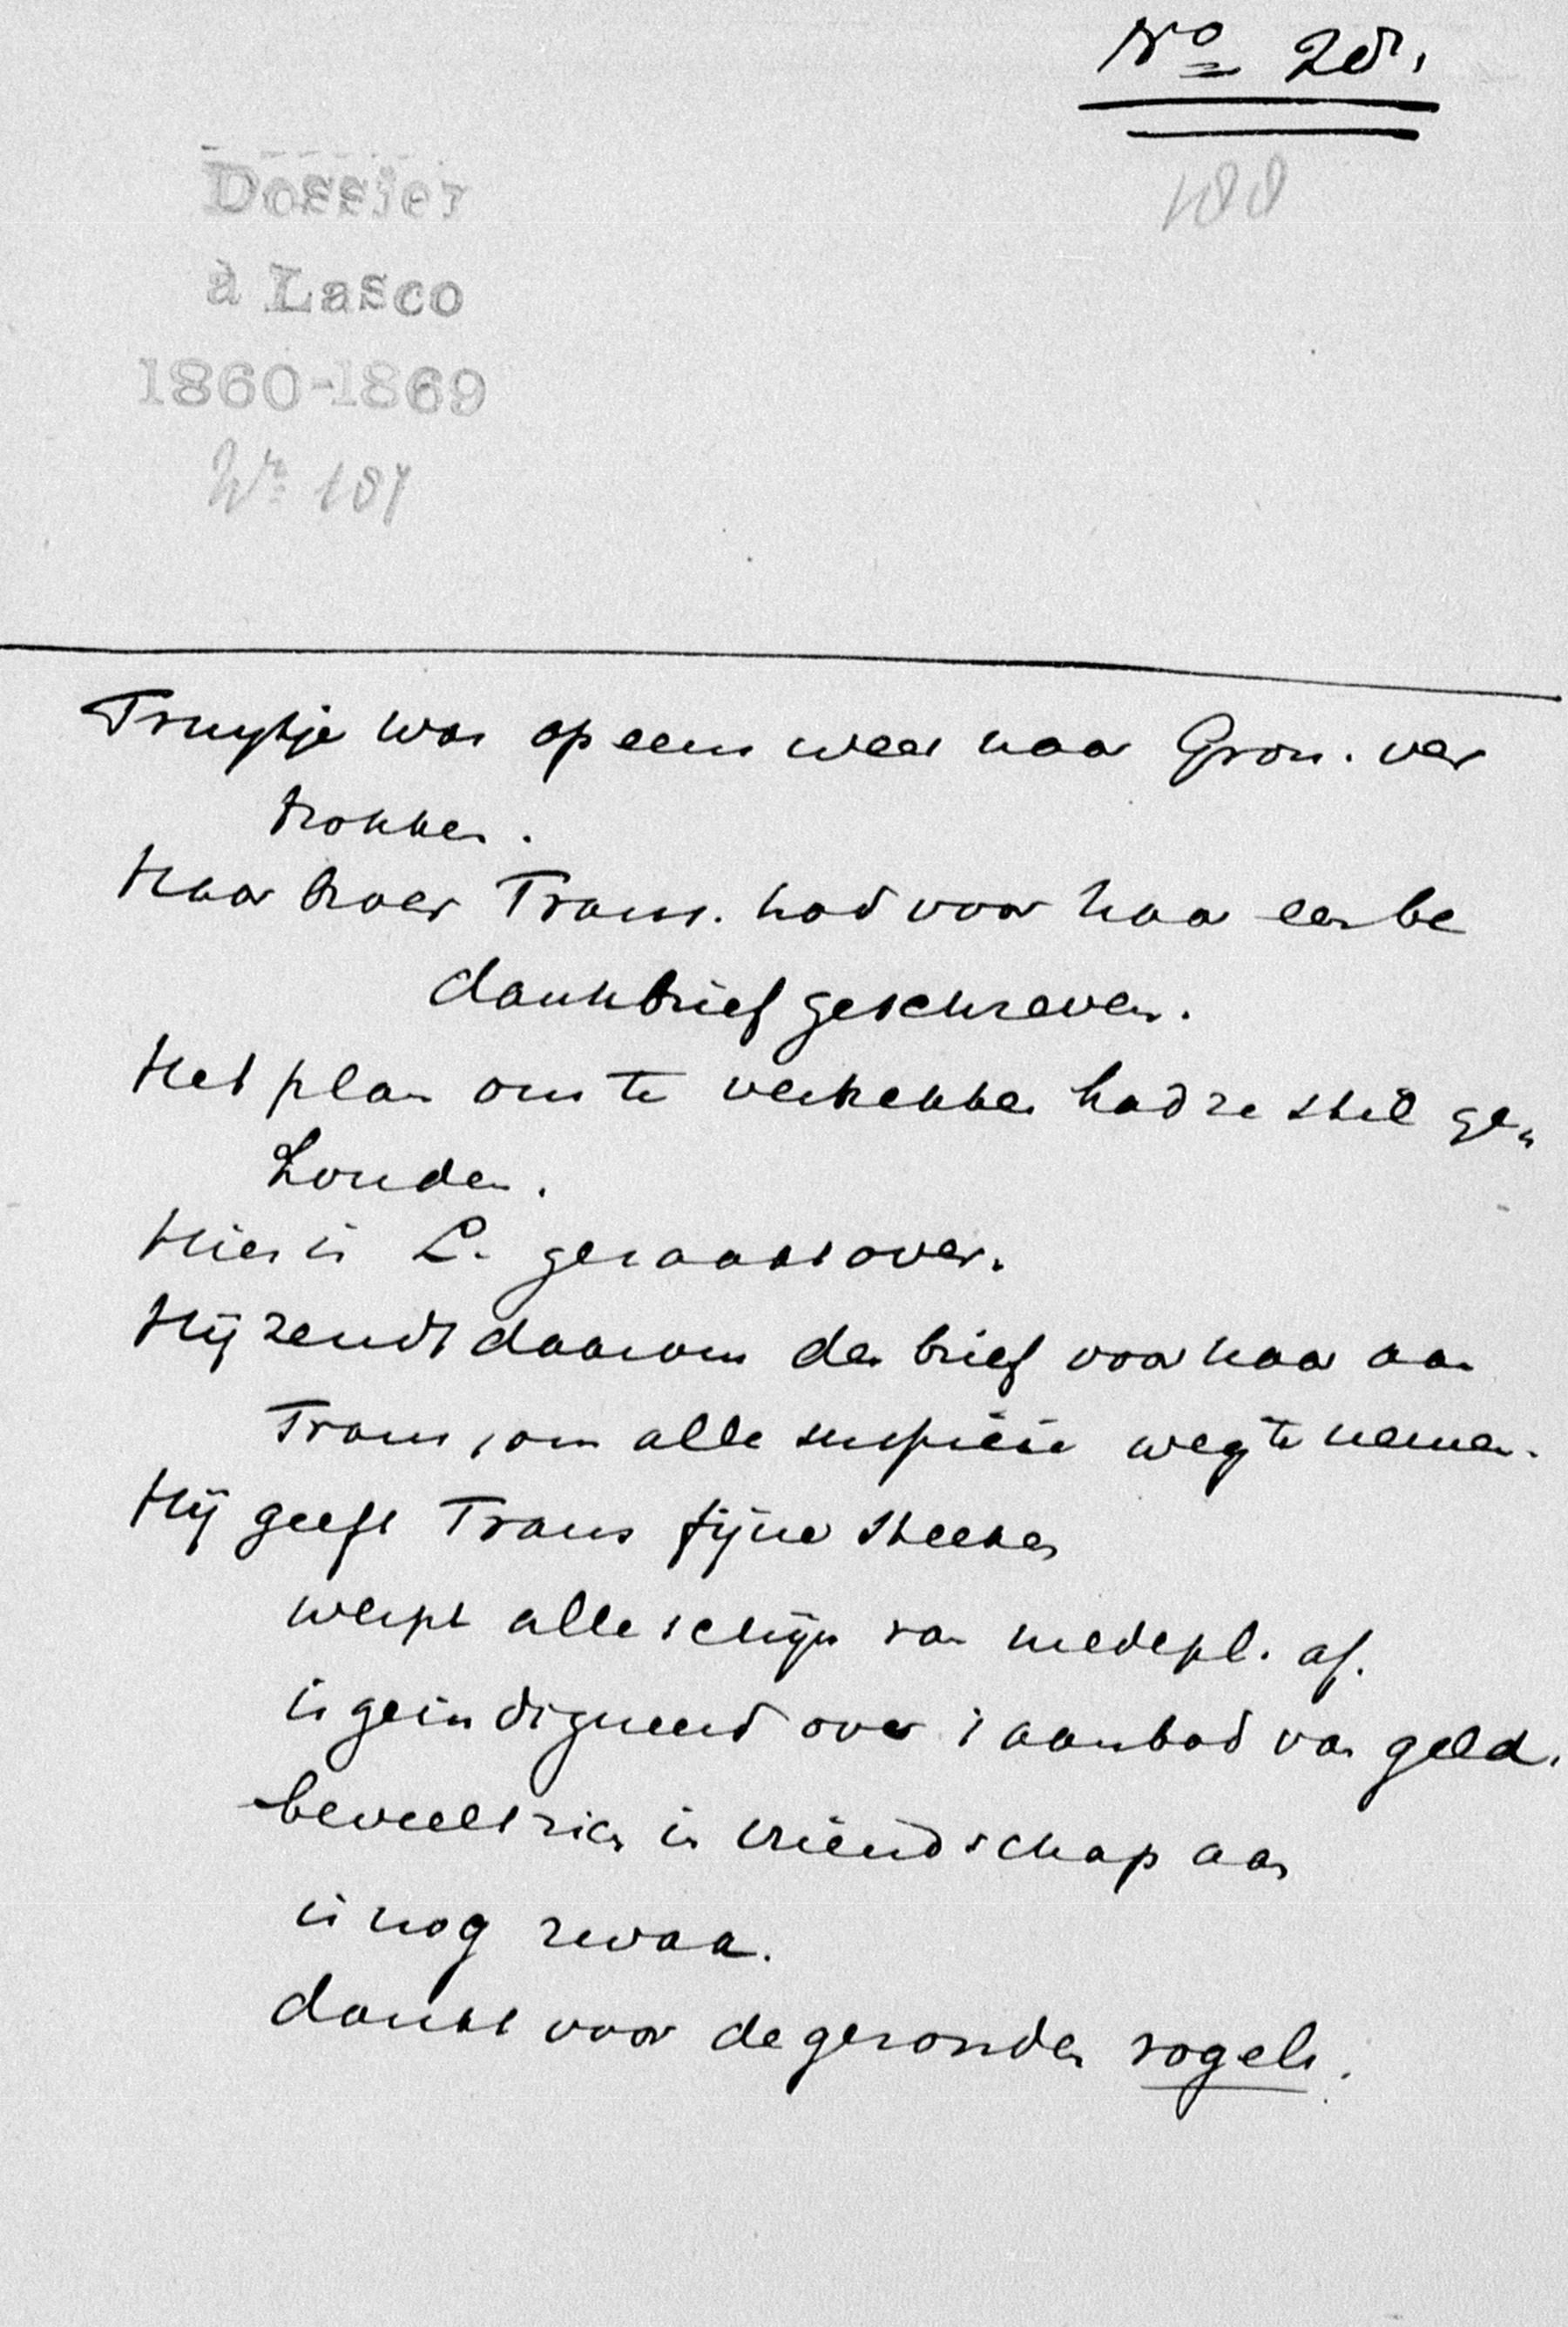 No 28.
188
Dossier
à Lasco
1860-1869
No 187
Truytje was opeens weer naar Gron. ver
trokken.
Haar broer Frans. had voor haar een be
dankbrief geschreven.
Het plan om te vertrekken had ze stil ge„
houden.
Hier is L. geraakt over.
Hij zendt daarom den brief voor haar aan
Frans, om alle suspicie weg te nemen.
Hij geeft Frans fijne steeken
werpt alle schijn van medepl. af.
is geindigneerd over 't aanbod van geld.
beveelt zich in vriendschap aan
is nog zwaa.
dankt voor de gezonden vogels.